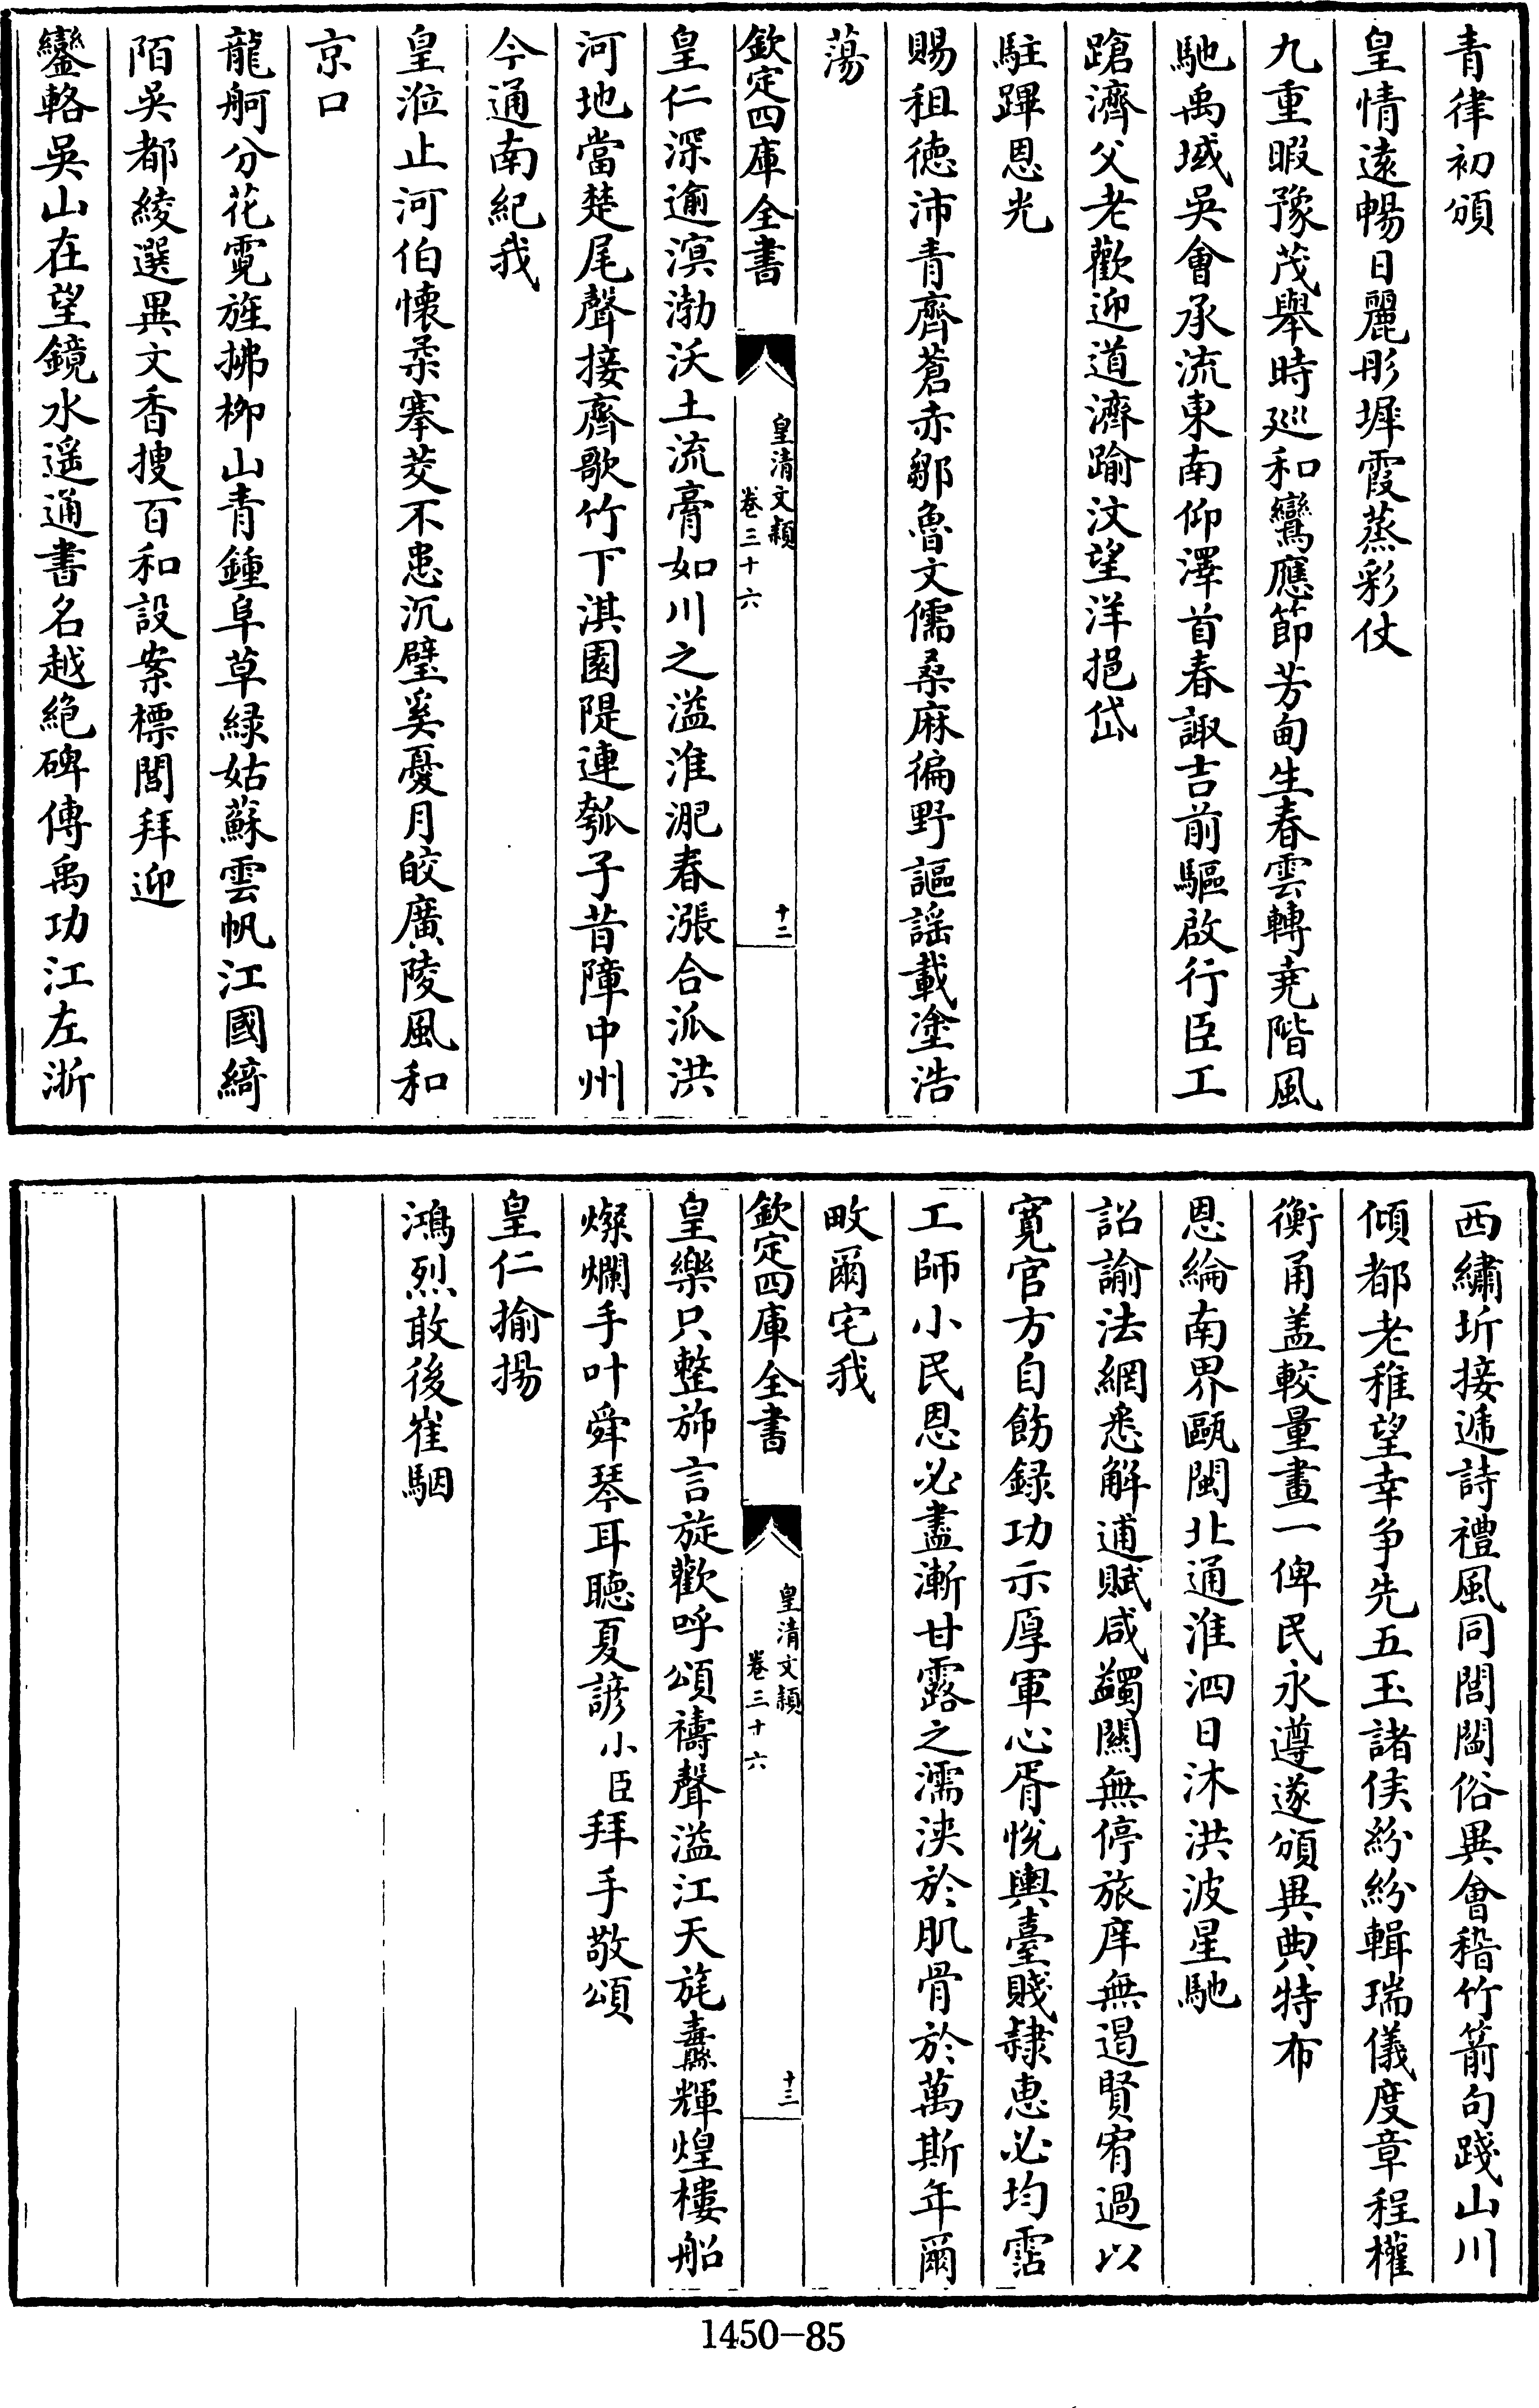 青律初頒
皇情遠暢日麗彤墀霞蒸彩仗
九重暇豫茂舉時廵和鸞應節芳甸生春雲轉尭階風
馳禹域吳會承流東南仰澤首春諏吉前驅啟行臣工
蹌濟父老歡迎道濟踰汶望洋挹岱
駐蹕恩光
賜租徳沛青齊蒼赤鄒魯文儒桑麻徧野謳謡載塗浩
蕩
欽定四庫全書
皇清文穎
卷三十六
十二
皇仁深逾溟渤沃土流膏如川之溢淮淝春漲合泒洪
河地當楚尾聲接齊歌竹下淇園隄連瓠子昔障中州
今通南紀我
皇涖止河伯懐柔搴茭不患沉璧奚憂月皎廣陵風和
京口
龍舸分花霓旌拂栁山青鍾阜草緑姑蘇雲帆江國綺
陌吳都綾選異文香搜百和設案標閭拜迎
鑾輅吳山在望鏡水遥通書名越絶碑傳禹功江左浙
西繡圻接遞詩禮風同閭閻俗異會稽竹箭句踐山川
傾都老稚望幸争先五玉諸侯紛紛輯瑞儀度章程權
衡甬盖較量畫一俾民永遵遂頒異典特布
恩綸南界甌閩北通淮泗日沐洪波星馳
詔諭法網悉解逋賦咸蠲關無停旅庠無遏賢宥過以
寛官方自飭録功示厚軍心胥悅輿臺賤隷惠必均霑
工師小民恩必盡漸甘露之濡浹於肌骨於萬斯年爾
畋爾宅我
欽定四庫全書
皇清文穎
卷三十六
十三
皇樂只整斾言旋歡呼頌禱聲溢江天旄纛輝煌樓船
燦爛手叶舜琴耳聴夏諺小臣拜手敬頌
皇仁揄揚
鴻烈敢後崔駰
1450-85